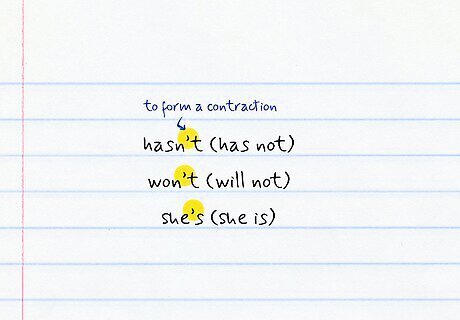 to form a contraction
hasn't (has not)
won't (will not)
she's (she is)